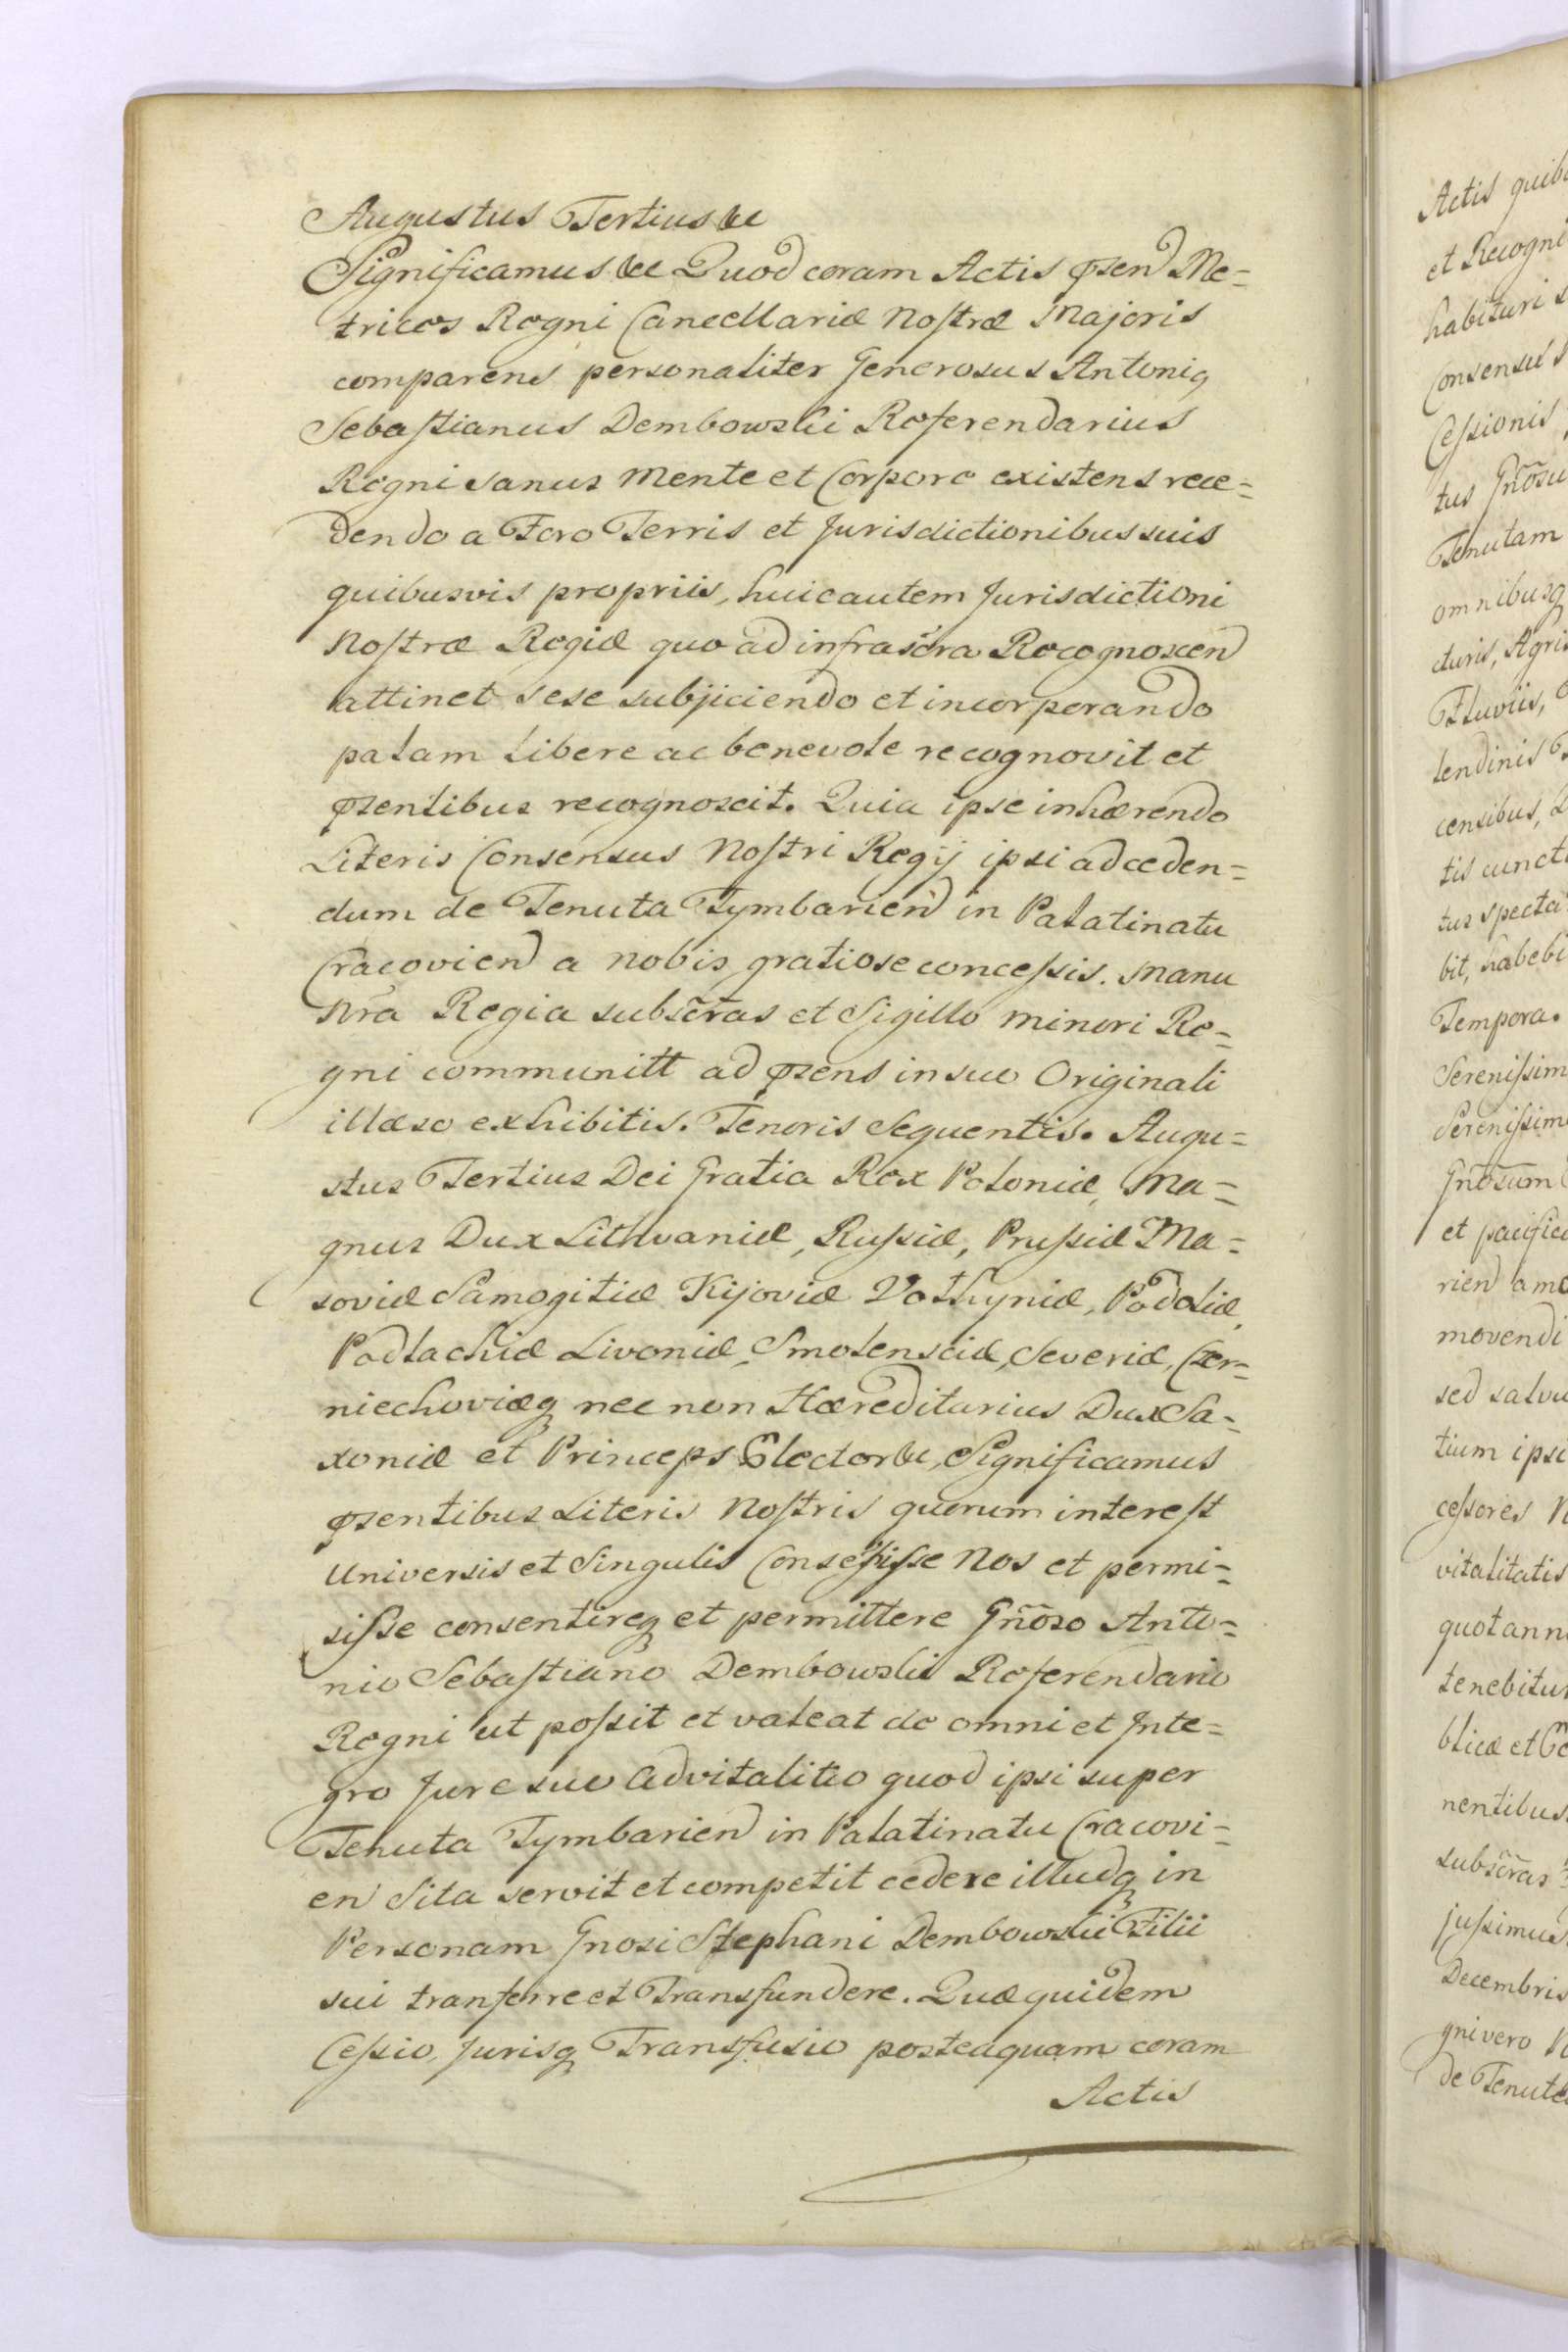 Augustus Tertius &c
Significamus &c Quod coram Actis pũsend Me=
trices Regni Cancellariæ Nostræ Majoris
comparens personaliter Generosus Antonig
Sebastianus Dembowski Referendarius
Regni sanus Mente et Corpore existens rece=
dendo a Foro Terris et Jurisdictionibus suis
quibusvis propriis, huic autem Jurisdictioni
Nostræ Regiæ quo ad infrascra Recognoscen
attinet sese subjiciendo et incorporando
palam Libere ac benevole recognovit et
psentibus recognoscit. Quia ipse inhærendo
Literis Consensus Nostri Regij ipsi ad ceden=
dum de Tenuta Tymbarien in Palatinatu
Cracovien a nobis gratiose concessis. Manu
Nra Regia subscras et Sigillo minori Re=
gni communitt ad psens in suo Originali
illæso exhibitis. Tenoris Sequentis. Augu=
stus Tertius Dei Gratia Rex Poloniæ, Ma=
gnus Dux Lithvaniæ, Russiæ, Prussiæ Ma=
soviæ Samogitiæ Kijoviæ Volhyniæ, Podoliæ,
Podlachiæ Livoniæ, Smolensciæ, Severiæ, Czer=
niechoviæq nec non Hæreditarius Dux Sa=
xoniæ et Princeps Elector &c, Significamus
psentibus Literis Nostris quorum interest
Universis et Singulis Consesisse Nos et permi=
sisse consentireq et permittere Gñoso Anto=
nio Sebastiano Dembowski Referendario
Regni ut possit et valeat de omni et Inte=
gro Jure suo Advitalitio quod ipsi super
Tenuta Tymbarien in Palatinatu Cracovi=
en Sita servit et competit cedere illudq in
Personam Gnosi Stephani Dembowski Filii
sui tranferre et Transfundere. Quæ quidem
Cessio, Jurisq Transfusio posteaquam coram
Actis
Actis
et
habituri
Consensus
Cessionis
tus
Tenutam
omnibusq
cturis, Agris
Fluviis,
lendinis
censibus,
tis
tus
bit, habebi
Tempora.
Serenissim
Serenissim
Gñosum
et
rien
movendi
sed salvu
tium ipsi
cessores
vitalitatis
quotann
tenebitur
blicæ et
nentibus
subscras
jussimus
Decembris
gni vero
de